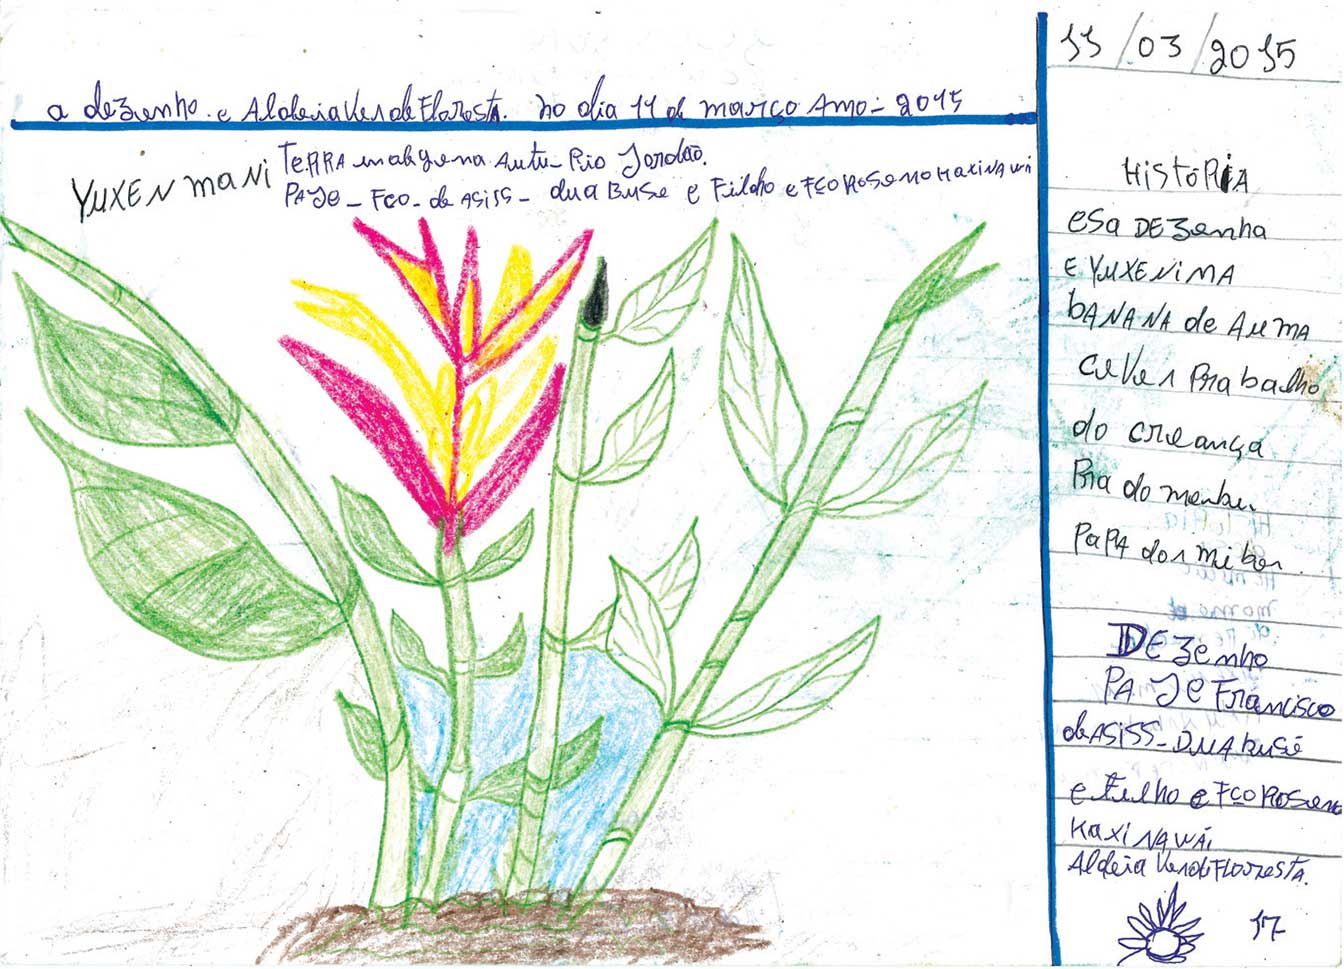 a dezenho. e Aldeia Verde Floresta. no dia 11 de março Amo - 2015
YUXEN mANi
TeRRA indigena Autu - Rio Jordão.
PAJe - Fco - de ASiSS - dua Buse e Filho e FCO ROSeNO KAXiNAWÁ
11/03/2015
HiStóRiA
eSa DEZenha
E YUXENiMA
bANANA de AUMA
do creança
PRa do
PAPA dormiber
DEZenho
PAJe Francisco
de ASiSS - DUA BuSé
e Filho e FCO ROSeno
KaxiNAWÁ
Aldeia Verde FLOreSTA.
17